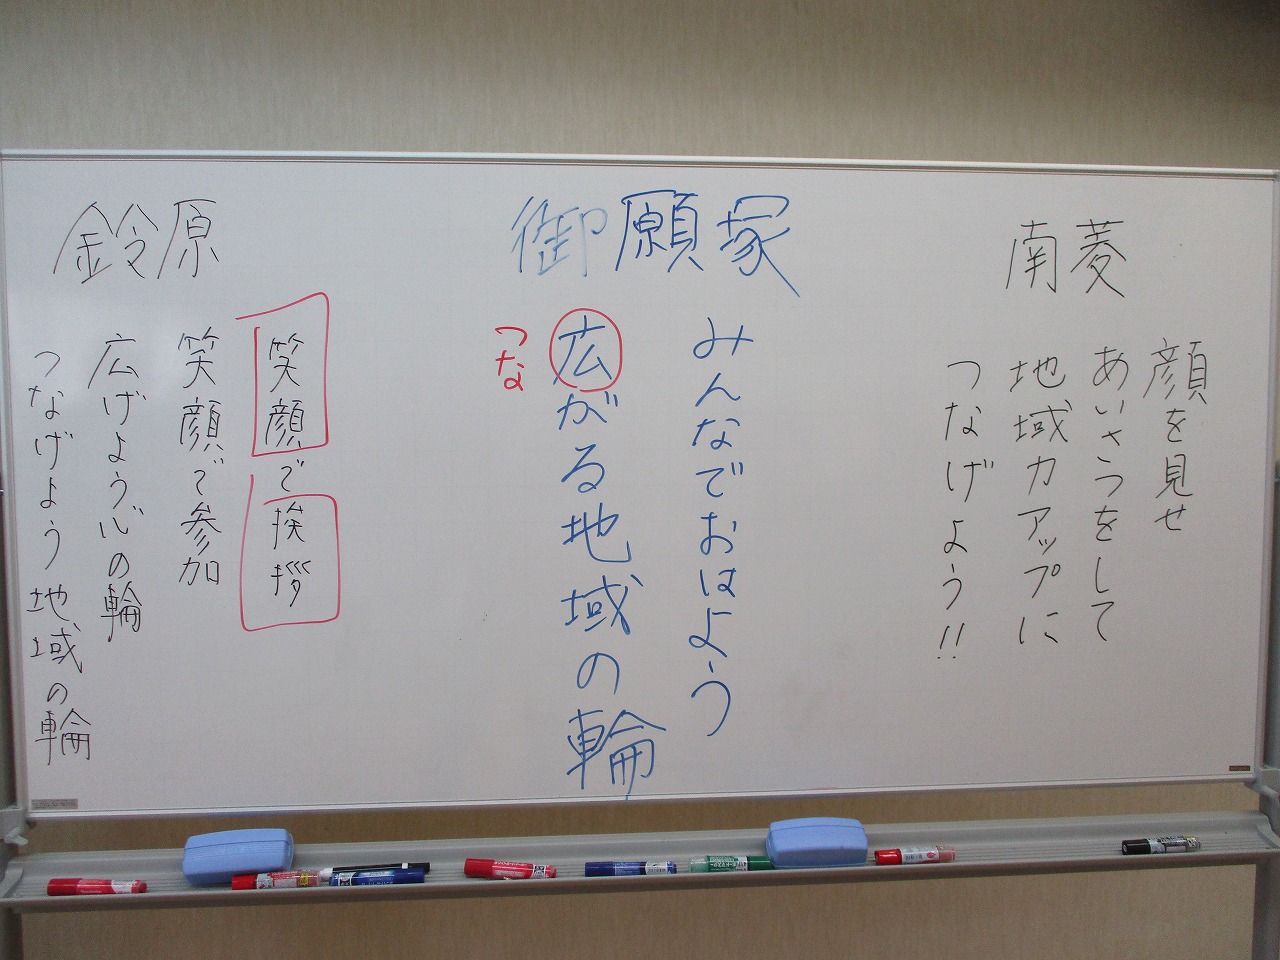 南菱
顔を見せ
あいさつをして
地域力アップに
つなげよう!!
御願塚
みんなでおはよう
広がる地域の輪
つな
鈴原
笑顔で挨拶
笑顔で参加
広げよう心の輪
つなげよう地域の輪